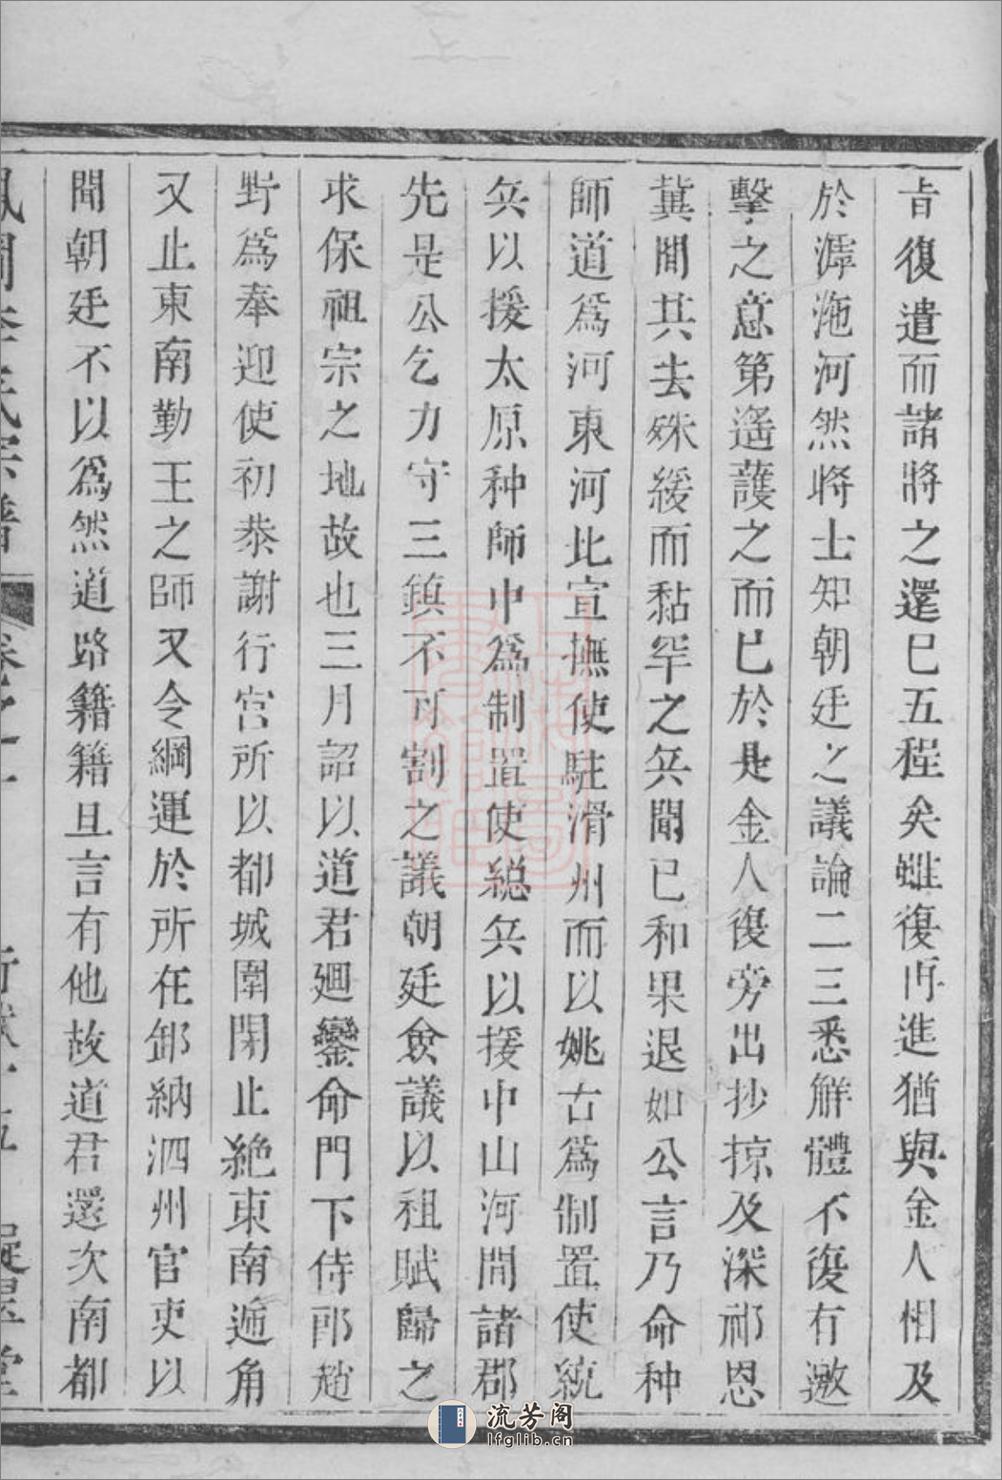 旨復遣而諸將之還已五程矣雖復再進猶與金人相及
於滹沱河然將士知朝廷之議論二三悉解體不復有邀
擊之意第遥護之而已於是金人復旁出抄掠及深祁恩
冀間其去殊緩而黏罕之兵聞已和果退如公言乃命种
師道爲河東河北宣撫使駐滑州而以姚古爲制置使統
兵以援太原种師中爲制置使總兵以援中山河間諸郡
先是公乞力守三鎮不可割之議朝廷僉議以租賦歸之
求保祖宗之地故也三月詔以道君廻鑾命門下侍郎趙
野爲奉迎使初恭謝行宮所以都城圍閉止絶東南遞角
又止東南勤王之師又令綱運於所在卸納泗州官吏以
聞朝廷不以爲然道路籍籍且言有他故道君還次南都
李氏宗譜 卷之一
流芳阁
lfglib.cn